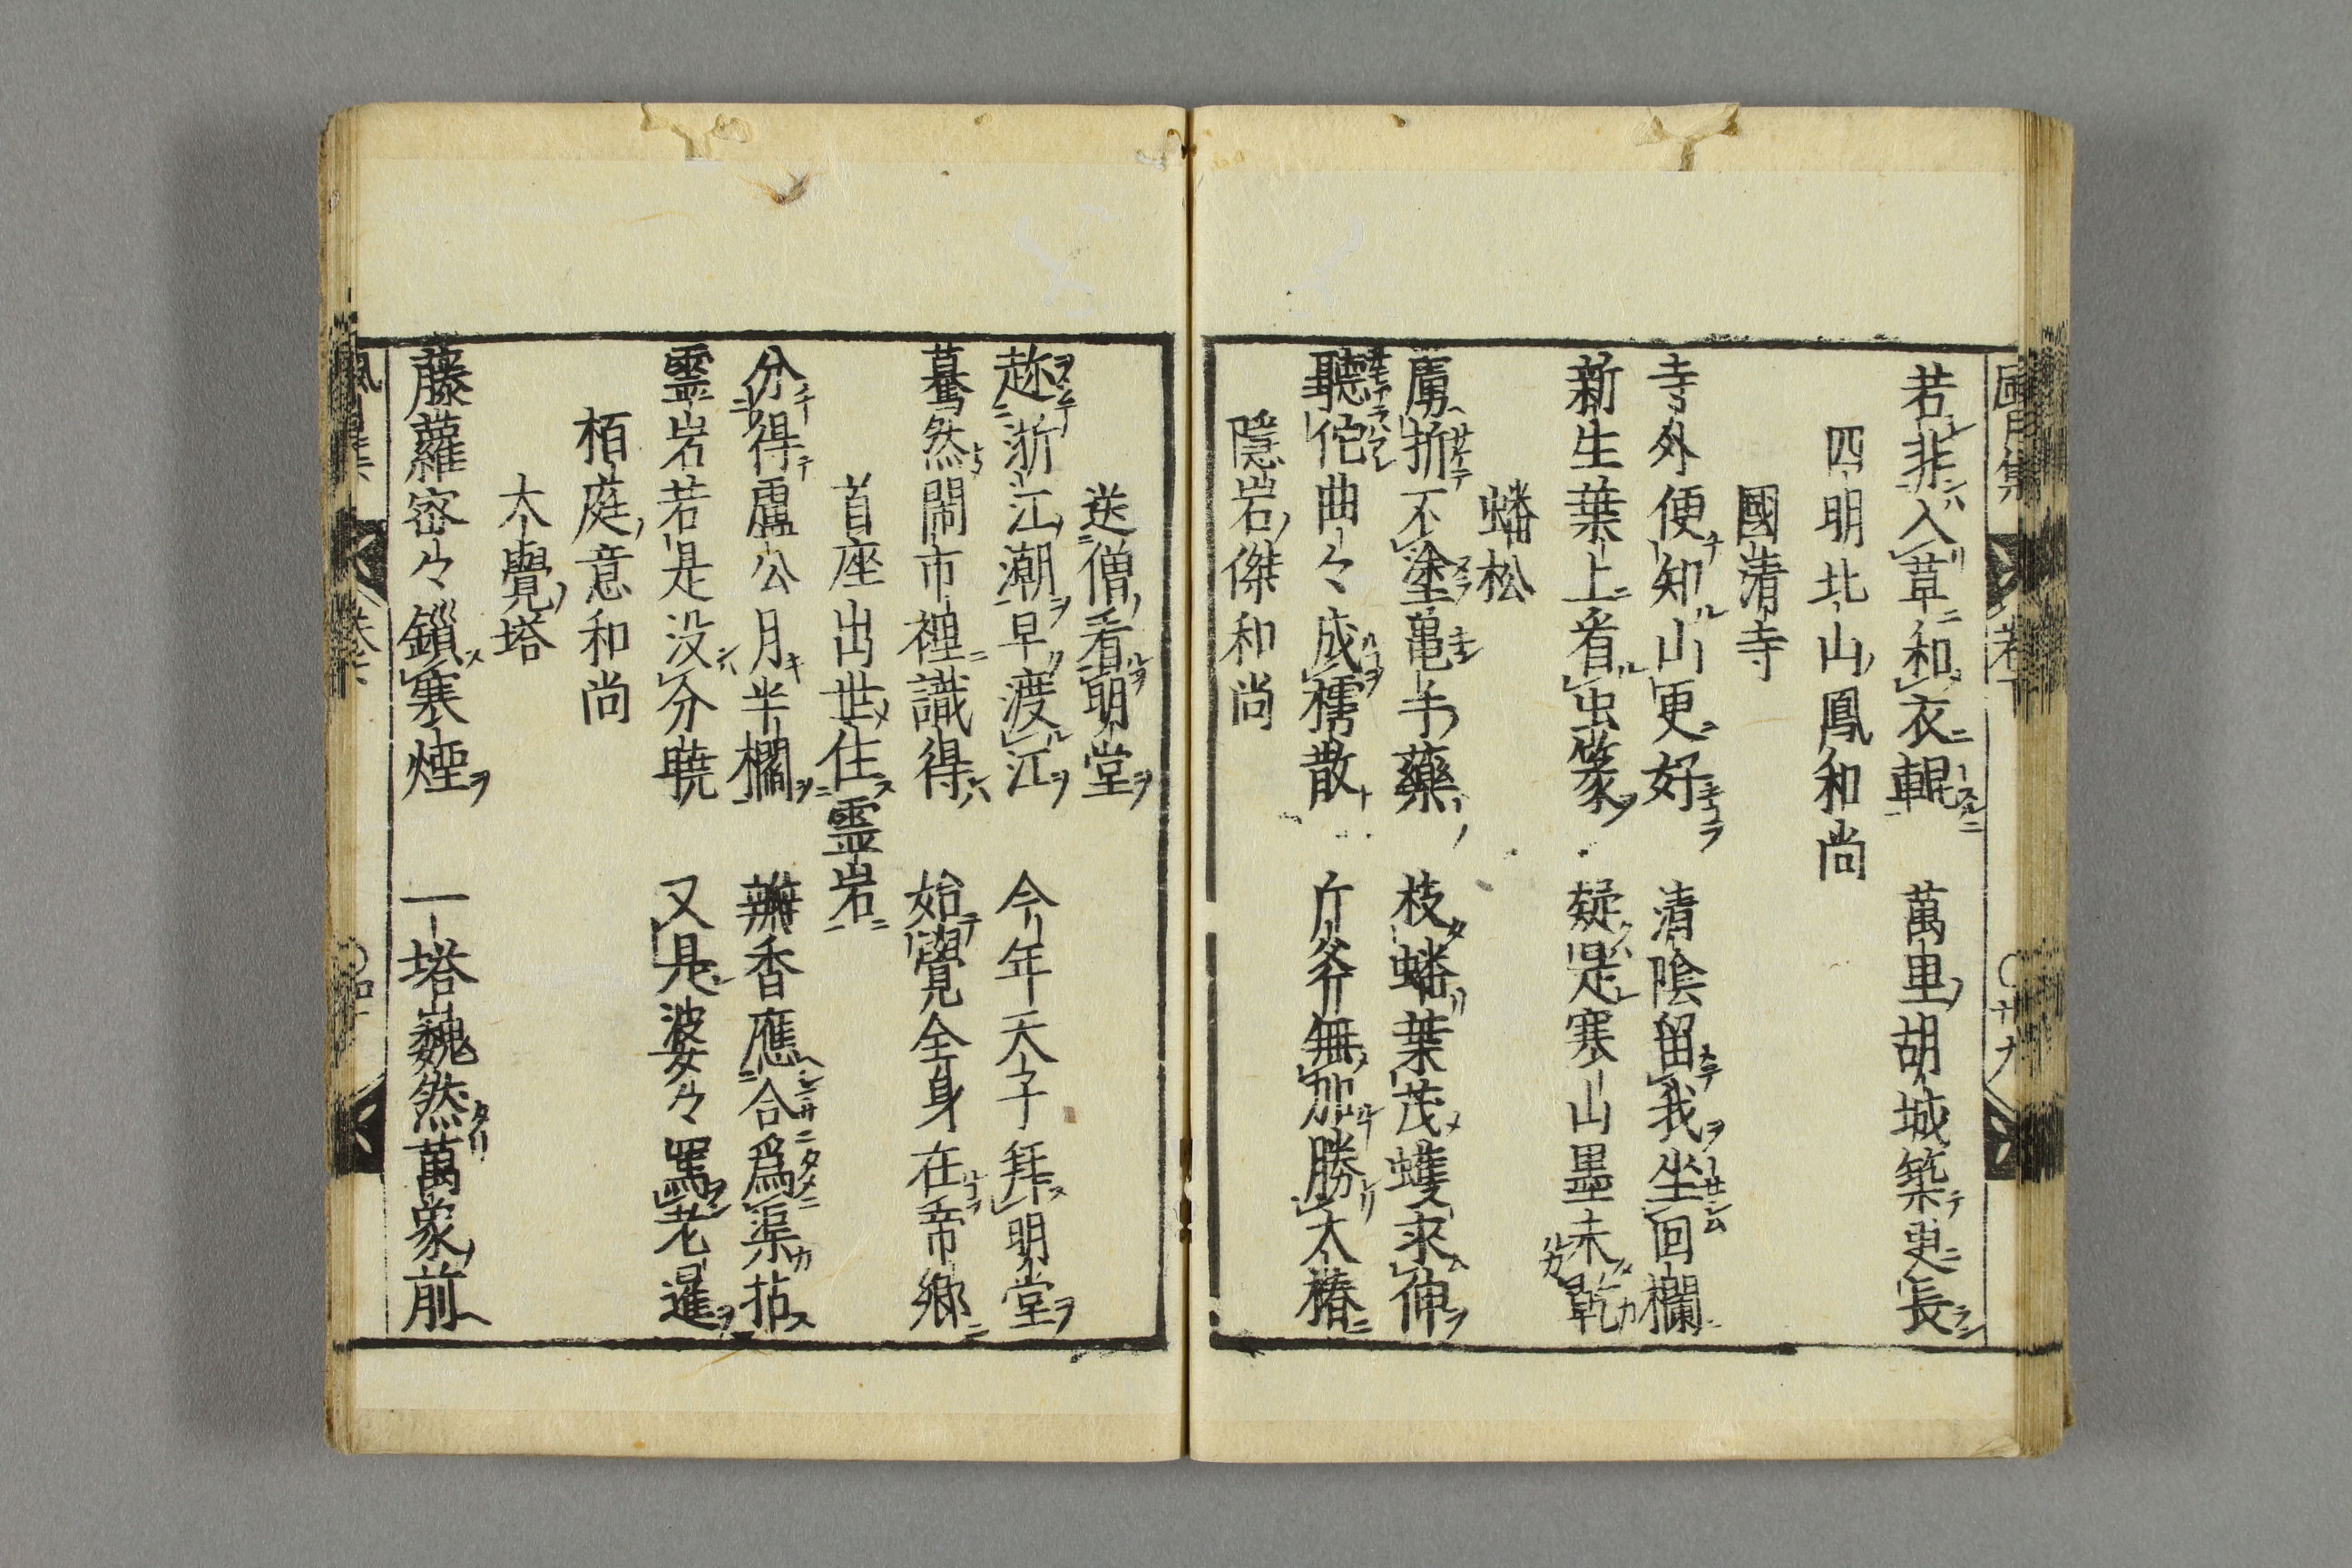 若非入草和衣輥　萬里胡城築更長
四明北山鳳和尚
國清寺
寺外便知山更好　清陰留我坐回欄
新生葉上看虫篆　疑是寒山墨未乾
蟠松
厲折不塗亀手藥　枝蟠葉茂蠖求伸
聽佗曲々成樗散　斤斧無加勝大椿
隱岩傑和尚
送僧看明堂
趂浙江潮早渡江　今年天子拜明堂
驀然閙市裡識得　始覺全身在帝郷
首座出世住霊岩
分得盧公月半櫊　瓣香應合爲渠拈
霊岩若是没分暁　又是婆々罵老暹
栢庭意和尚
大覺塔
藤蘿密々鎖寒煙　一塔巍然萬象前